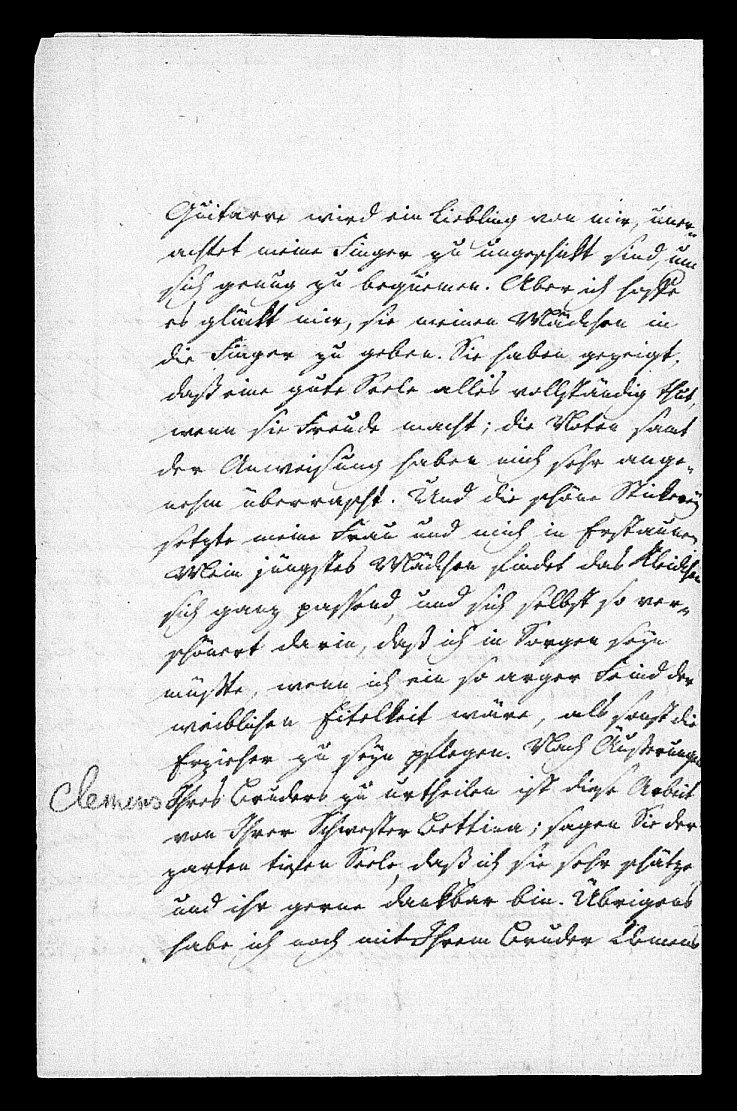 Guitarre wird ein Liebling von mir, uner-
achtet meine Finger zu ungeschikt sind, um
sich genug zu bequemen. Aber ich hoffe
es glückt mir, sie meinen Mädchen in
die Finger zu geben. Sie haben gezeigt,
daß eine gute Seele alles vollständig thut,
wenn sie Freude macht; die Noten samt
der Anweisung haben mich sehr ange-
nehm überrascht. Und die schöne Stickerey
setzte meine Frau und mich in Erstaunen
Mein jüngstes Mädchen findet das Kleidchen
sich ganz passend, und sich selbst so ver-
schönert darin, daß ich in Sorgen seyn
müßte, wenn ich ein so arger Feind der
weiblichen Eitelkeit wäre, als sonst die
Erzieher zu seyn pflegen. Nach Äußerungen
Clemens Ihres Bruders zu urtheilen ist diese Arbeit
von Ihrer Schwester Bettina; sagen Sie der
zarten tiefen Seele, daß ich sie sehr schätze
und ihr gerne dankbar bin. Übrigens
habe ich noch mit Ihrem Bruder Clemens